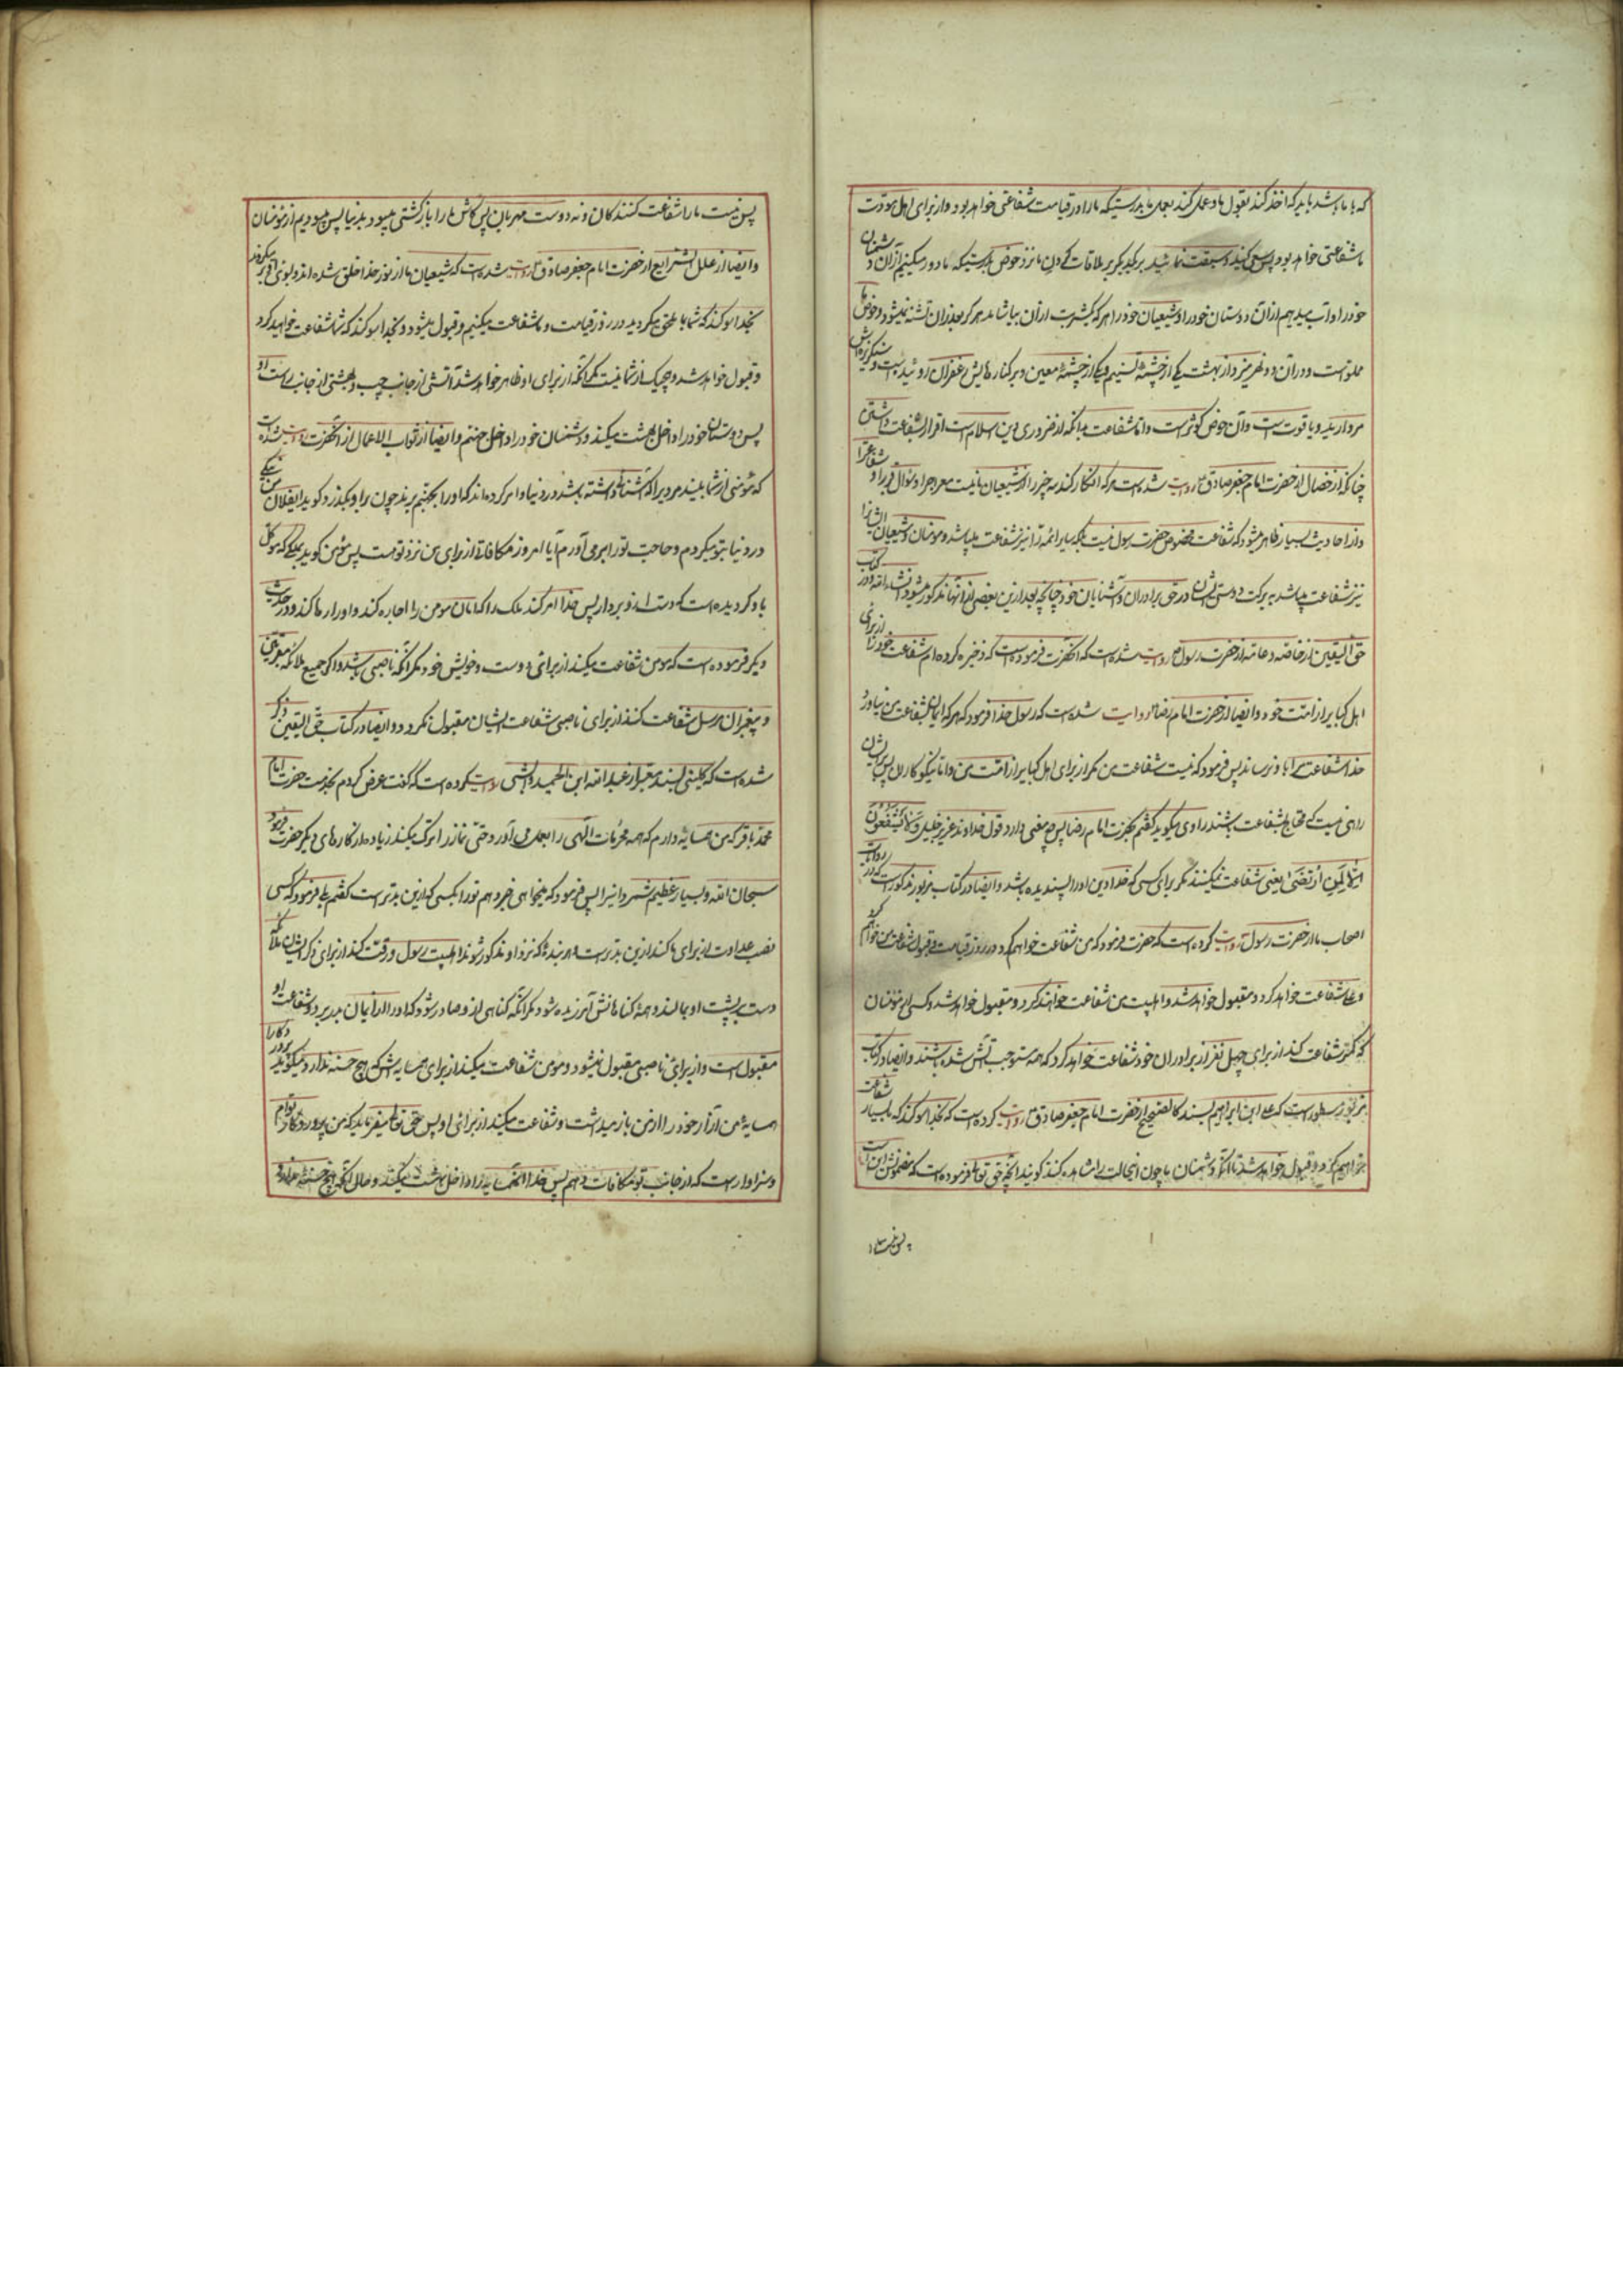 که با ما باشد باید که اخذ کند بقول ما و عمل کند بعمل ما بدرستیکه ما را در قیامت شفاعتی خواهد بود و از برای اهل مودت
ما شفاعتی خواهد بود پس سعی کنید و سبقت نمائید بر یکدیگر بر ملاقات کردن ما نزد حوض بدرستیکه ما دور میکنیم از آن دشمنان
خود را و آب میدهیم از آن دوستان خود را و شیعیان خود را هر که یکشربت از آن بیاشامد هرگز بعد از آن تشنه نمیشود و حوض ما
مملو است و در آن دو نهر میریزد از بهشت یکی از چشمه تسنیم و یکی از چشمه معین و بر کنارهایش زعفران روئیده است و سنگریزه‌اش
مروارید و یاقوت است و آن حوض کوثر است و اما شفاعت بدانکه از ضروری دین اسلام است اقرار بشفاعت داشتن
چنانکه از خصال از حضرت امام جعفر صادق روایت شده است هر که انکار کند سه چیز را از شیعیان ما نیست معراج را و سئوال قبر را و شفاعترا
و از احادیث بسیار ظاهر میشود که شفاعت مخصوص حضرت رسول نیست بلکه سایر ائمه را نیز شفاعت میباشد و مومنان و شیعیان ایشانرا
نیز شفاعت میباشد به برکت دوستی ایشان در حق برادران و آشنایان خود چنانچه بعد از این بعضی از آنها مذکور میشود انشاء الله و در کتاب
حق الیقین از خاصه و عامه از حضرت رسول ص روایت شده است که آنحضرت فرموده است که ذخیره کرده ام شفاعت خود را از برای
اهل کبایر از امت خود و ایضا از حضرت امام رضا روایت شده است که رسول خدا فرمود که هر که ایمان بشفاعت من نیاورد
خدا شفاعت مرا باو نرساند پس فرمود که نیست شفاعت من مگر از برای اهل کبایر از امت من و اما نیکوکاران پس بر ایشان
راهی نیست که محتاج بشفاعت باشند راوی میگوید گفتم بحضرت امام رضا پس چه معنی دارد قول خداوند عزیز جلیل و لا یشفعون
الا لمن ارتضی یعنی شفاعت نمیکنند مگر برای کسی که خدا دین او را پسندیده باشد و ایضا در کتاب مزبور مذکور است که در روایات
اصحاب ما از حضرت رسول روایت کرده است که حضرت فرمود که من شفاعت خواهم کرد در روز قیامت و قبول شفاعت من خواهم کرد
و علی شفاعت خواهد کرد و مقبول خواهد شد و اهلبیت من شفاعت خواهند کرد و مقبول خواهد شد و کسی از مؤمنان
که کمتر شفاعت کند از برای چهل نفر از برادران خود شفاعت خواهد کرد که همه مستوجب آتش شده باشند و ایضا در کتاب
مزبور مسطور است که علی ابن ابراهیم بسند کالصحیح از حضرت امام جعفر صادق روایت کرده است که بخدا سوگند که بسیار شفاعت
خواهیم کرد و قبول خواهد شد تا آنکه دشمنان ما چون اینحالت را مشاهده کنند گویند آنچه حق تعالی فرموده است که مضمونش این است
پس نیست ما را
پس نیست ما را شفاعت کنندگان و نه دوست مهربان پس کاش ما را بازگشتی میبود بدنیا پس میبودیم از مؤمنان
و ایضا از علل الشرایع از حضرت امام جعفر صادق روایت شده است که شیعیان ما از نور خدا خلق شده اند و بسوی او بر میگردند
بخدا سوگند که شما بما ملحق میگردید در روز قیامت و ما شفاعت میکنیم و قبول میشود و بخدا سوگند که شما شفاعت خواهید کرد
و قبول خواهد شد و هیچیک از شما نیست مگر آنکه از برای او ظاهر خواهد شد آتشی از جانب چپ و بهشتی از جانب راست او
پس دوستان خود را داخل بهشت میکند و دشمنان خود را داخل جهنم و ایضا از ثواب الاعمال از آنحضرت روایت شده است
که مؤمنی از شما ببیند مردیرا که آشنائی داشته باشد در دنیا و امر کرده اند که او را بجهنم برند چون بر او بگذرد گوید ایفلان من نیکی
در دنیا بتو میکردم و حاجت تو را بر می آوردم آیا امروز مکافاتی از برای من نزد تو هست پس مؤمن گوید بملکی که موکل
باو گردیده است که دست از او بردار پس خدا امر کند ملک را که امان مومن را اجازه کند و او را رها کند و در حدیث
دیگر فرموده است که مومن شفاعت میکند از برای دوست و خویش خود مگر آنکه ناصبی باشد و اگر جمیع ملائکه مقربین
و پیغمبران مرسل شفاعت کنند از برای ناصبی شفاعت ایشان مقبول نگردد و ایضا در کتاب حق الیقین ذکر
شده است که کلینی بسند معتبر از عبد الله ابن الحمید وابشی روایت کرده است که گفت عرض کردم بخدمت حضرت امام
محمد باقر که من همسایه دارم که همه محرمات الهی را بعمل می آورد حتی نماز را ترک میکند زیاده از کارهای دیگر حضرت فرمود
سبحان الله و بسیار عظیم شمرد اینرا پس فرمود که میخواهی خبر دهم تو را بکسی که از این بدتر است گفتم بلی فرمود که کسی
نصب عداوت از برای ما کند از این بدتر است و هر بنده که نزد او مذکور شوند اهلبیت رسول و رقت کند از برای ذکر ایشان ملائکه
دست بر پشت او بمالند و همه گناهانش آمرزیده شود مگر آنکه گناهی از او صادر شود که او را از ایمان بدر برد و شفاعت او
مقبول است و از برای ناصبی مقبول نمیشود و مومن شفاعت میکند از برای همسایه اش که هیچ حسنه ندارد و میگوید پروردگارا
همسایه من آزار خود را از من باز میداشت و شفاعت میکند از برای او پس حق تعالی میفرماید که من پروردگار توام
و سزاوار است که از جانب تو مکافات دهم پس خدا آنهمسایه را داخل بهشت میکند و حال آنکه هیچ حسنه ندارد و